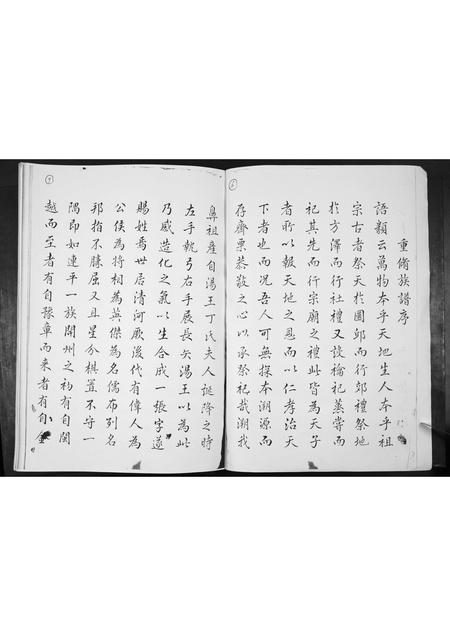 重脩族譜序
語類云萬物本乎天地生人本乎祖
宗古者祭天於圜邱而行郊禮祭地
於方澤而行社禮又設禴祀蒸嘗而
祀其先而行宗廟之禮此皆為天子
者所以報天地之恩而以仁孝治天
下者也而況吾人可無探本溯源而
存齊栗恭敬之心以承祭祀哉溯我
鼻祖產自湯王丁氏夫人誕降之時
左手執弓右手展長矢湯王以為此
乃感造化之氣以生合成一張字遂
賜姓焉世居清河厥後代有偉人為
公侯為將相為英傑為名儒布列名
邦指不勝屈又且星分棋置不守一
隅即如連平一族開州之初有自閩
越而至者有自豫章而來者有自金